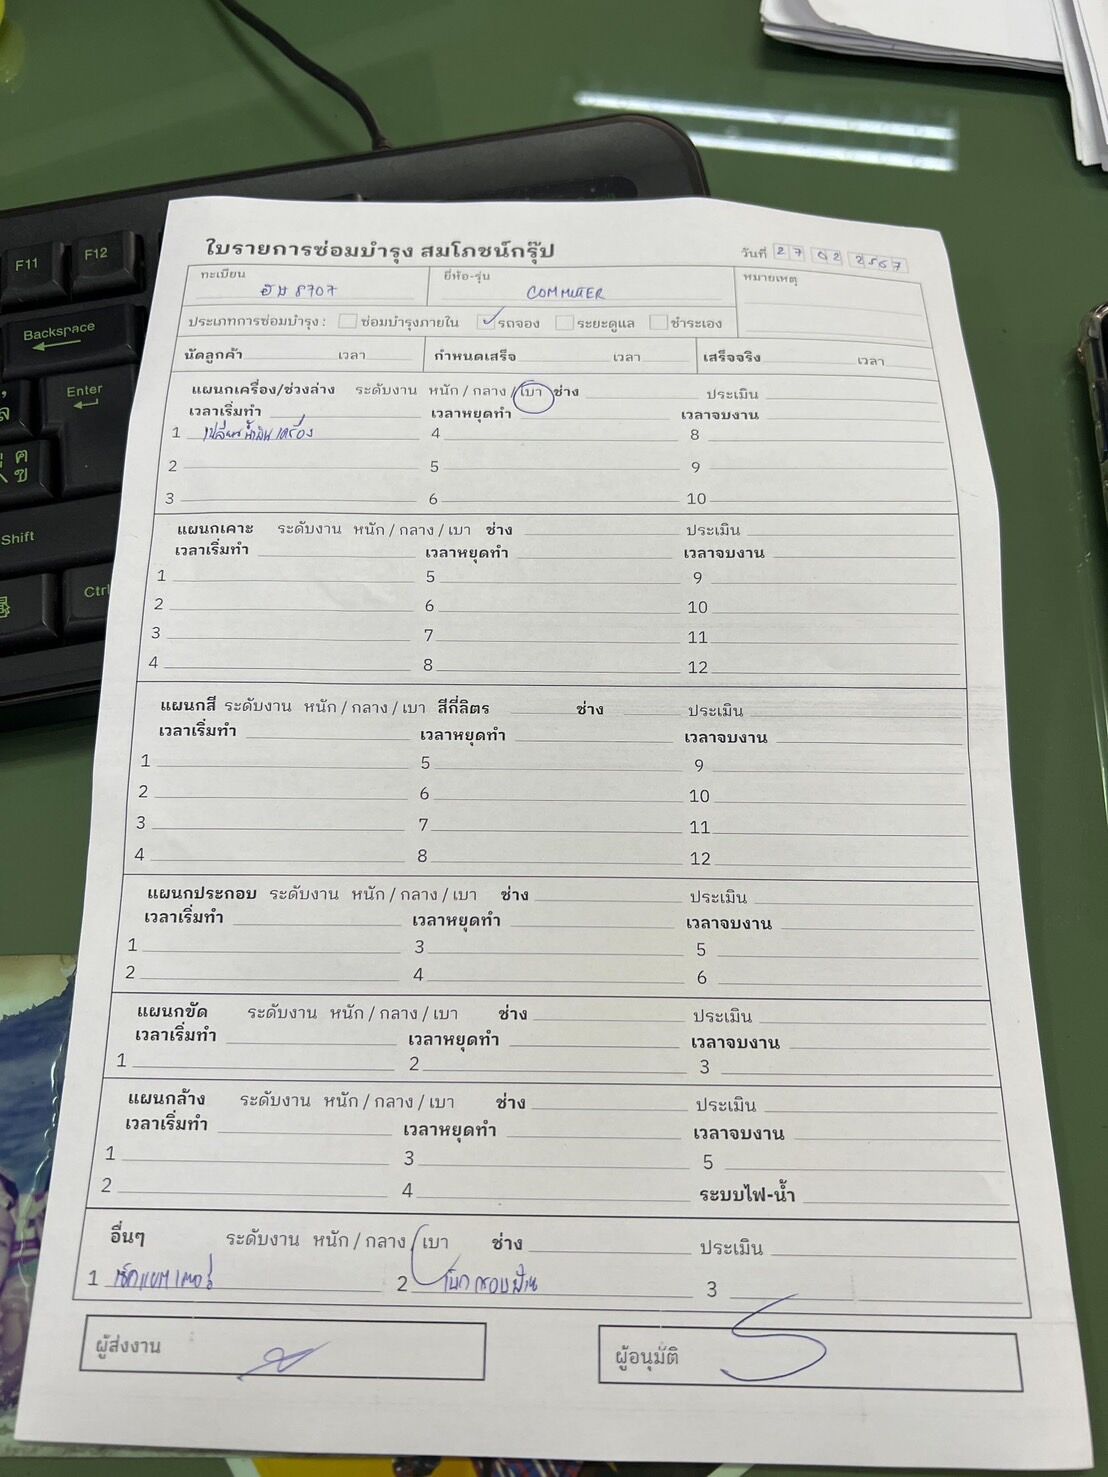 F11
F12
Backspace
Enter
Shift
Ctrl
ใบรายการซ่อมบำรุง สมโภชน์กรุ๊ป
วันที่ 27 02 2567
ทะเบียน ฮษ 8707
ยี่ห้อ-รุ่น COMMUTER
หมายเหตุ
ประเภทการซ่อมบำรุง : ซ่อมบำรุงภายใน รถจอง ระยะดูแล ชำระเอง
นัดลูกค้า เวลา กำหนดเสร็จ เวลา เสร็จจริง เวลา
แผนกเครื่อง/ช่วงล่าง ระดับงาน หนัก / กลาง / เบา ช่าง ประเมิน
เวลาเริ่มทำ เวลาหยุดทำ เวลาจบงาน
1 เปลี่ยนน้ำมันเครื่อง 4 8
2 5 9
3 6 10
แผนกเคาะ ระดับงาน หนัก / กลาง / เบา ช่าง ประเมิน
เวลาเริ่มทำ เวลาหยุดทำ เวลาจบงาน
1 5 9
2 6 10
3 7 11
4 8 12
แผนกสี ระดับงาน หนัก / กลาง / เบา สีกี่ลิตร ช่าง ประเมิน
เวลาเริ่มทำ เวลาหยุดทำ เวลาจบงาน
1 5 9
2 6 10
3 7 11
4 8 12
แผนกประกอบ ระดับงาน หนัก / กลาง / เบา ช่าง ประเมิน
เวลาเริ่มทำ เวลาหยุดทำ เวลาจบงาน
1 3 5
2 4 6
แผนกขัด ระดับงาน หนัก / กลาง / เบา ช่าง ประเมิน
เวลาเริ่มทำ เวลาหยุดทำ เวลาจบงาน
1 2 3
แผนกล้าง ระดับงาน หนัก / กลาง / เบา ช่าง ประเมิน
เวลาเริ่มทำ เวลาหยุดทำ เวลาจบงาน
1 3 5
2 4 ระบบไฟ-น้ำ
อื่นๆ ระดับงาน หนัก / กลาง / เบา ช่าง ประเมิน
1 เช็คแบตเตอรี่ 2 3
ผู้ส่งงาน
ผู้อนุมัติ